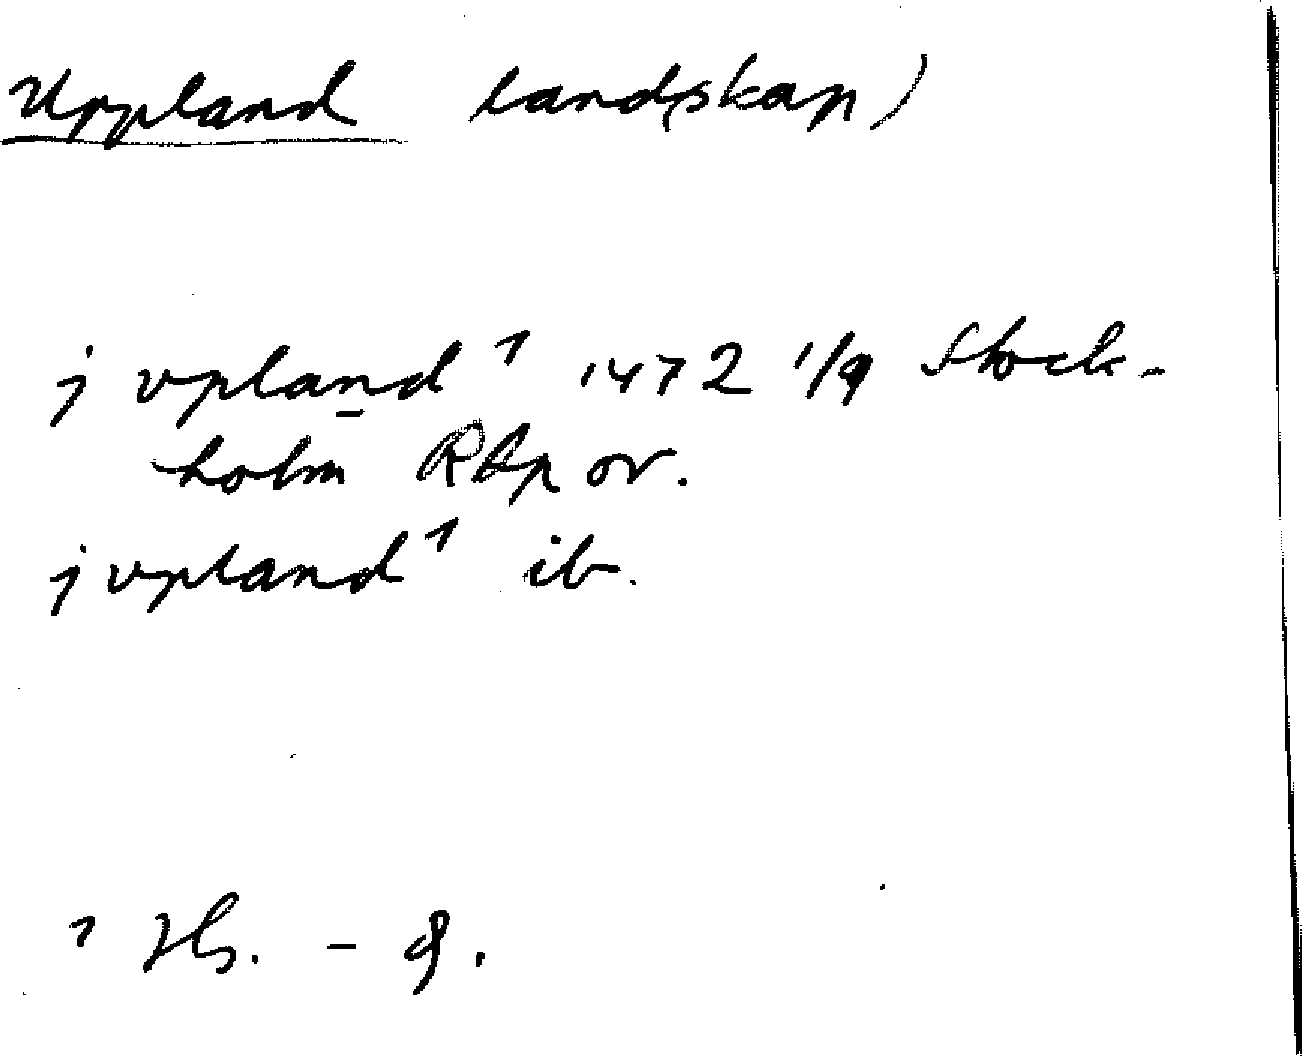 Uppland land(skap)
j vpland¹ 1472 1/9 Stock-
holm RAp or.
j vpland¹ ib.
¹ Hs.